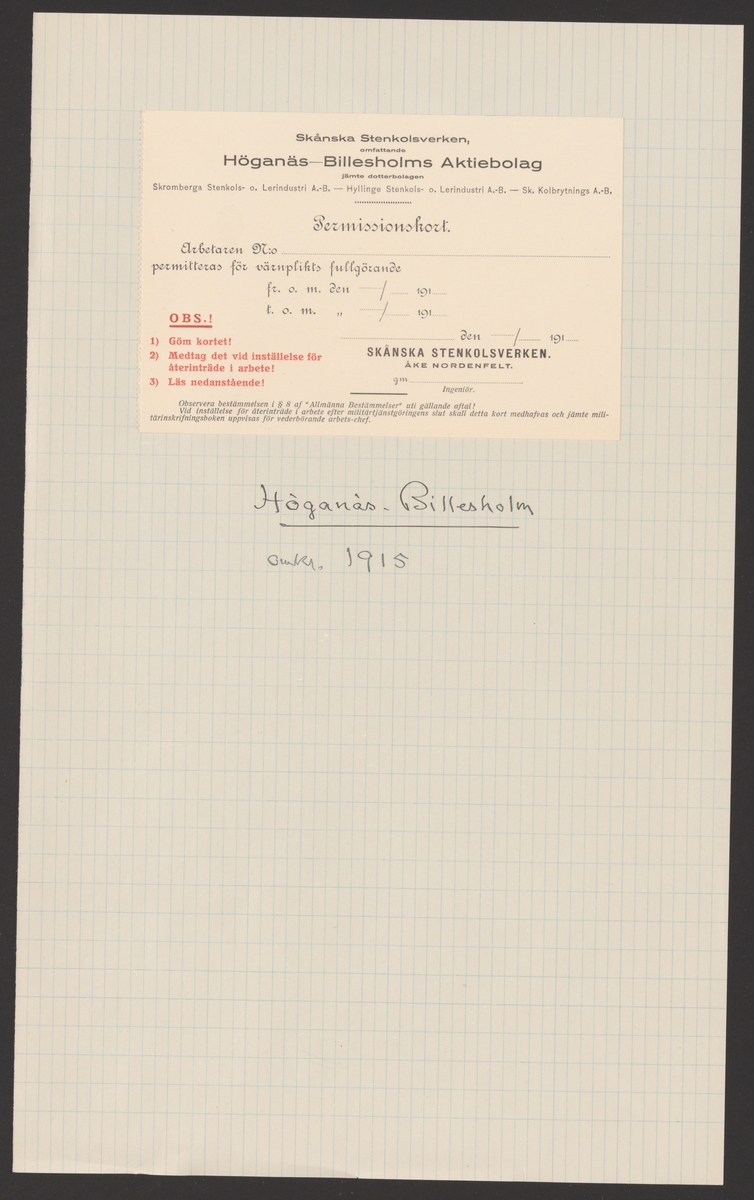 Skånska Stenkolsverken,
omfattande
Höganäs—Billesholms Aktiebolag
jämte dotterbolagen
Skromberga Stenkols- o. Lerindustri A.-B. — Hyllinge Stenkols- o. Lerindustri A.-B. — Sk. Kolbrytnings A.-B.
Permissionskort.
Arbetaren N:o
permitteras för värnplikts fullgörande
fr. o. m. den / 191
t. o. m. „ / 191
OBS.!
1) Göm kortet!
2) Medtag det vid inställelse för
återinträde i arbete!
3) Läs nedanstående!
den / 191
SKÅNSKA STENKOLSVERKEN.
ÅKE NORDENFELT.
gm
Ingeniör.
Observera bestämmelsen i § 8 af "Allmänna Bestämmelser" uti gällande aftal!
Vid inställelse för återinträde i arbete efter militärtjänstgöringens slut skall detta kort medhafvas och jämte mili-
tärinskrifningsboken uppvisas för vederbörande arbets-chef.
Höganäs - Billesholm
omkr. 1915